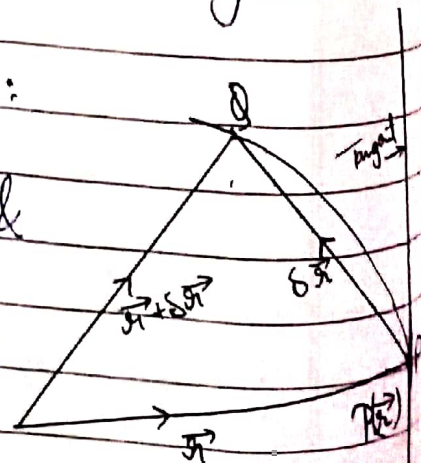 :
Q
Tangent
&
δr⃗
r⃗+δr⃗
P(r⃗)
r⃗